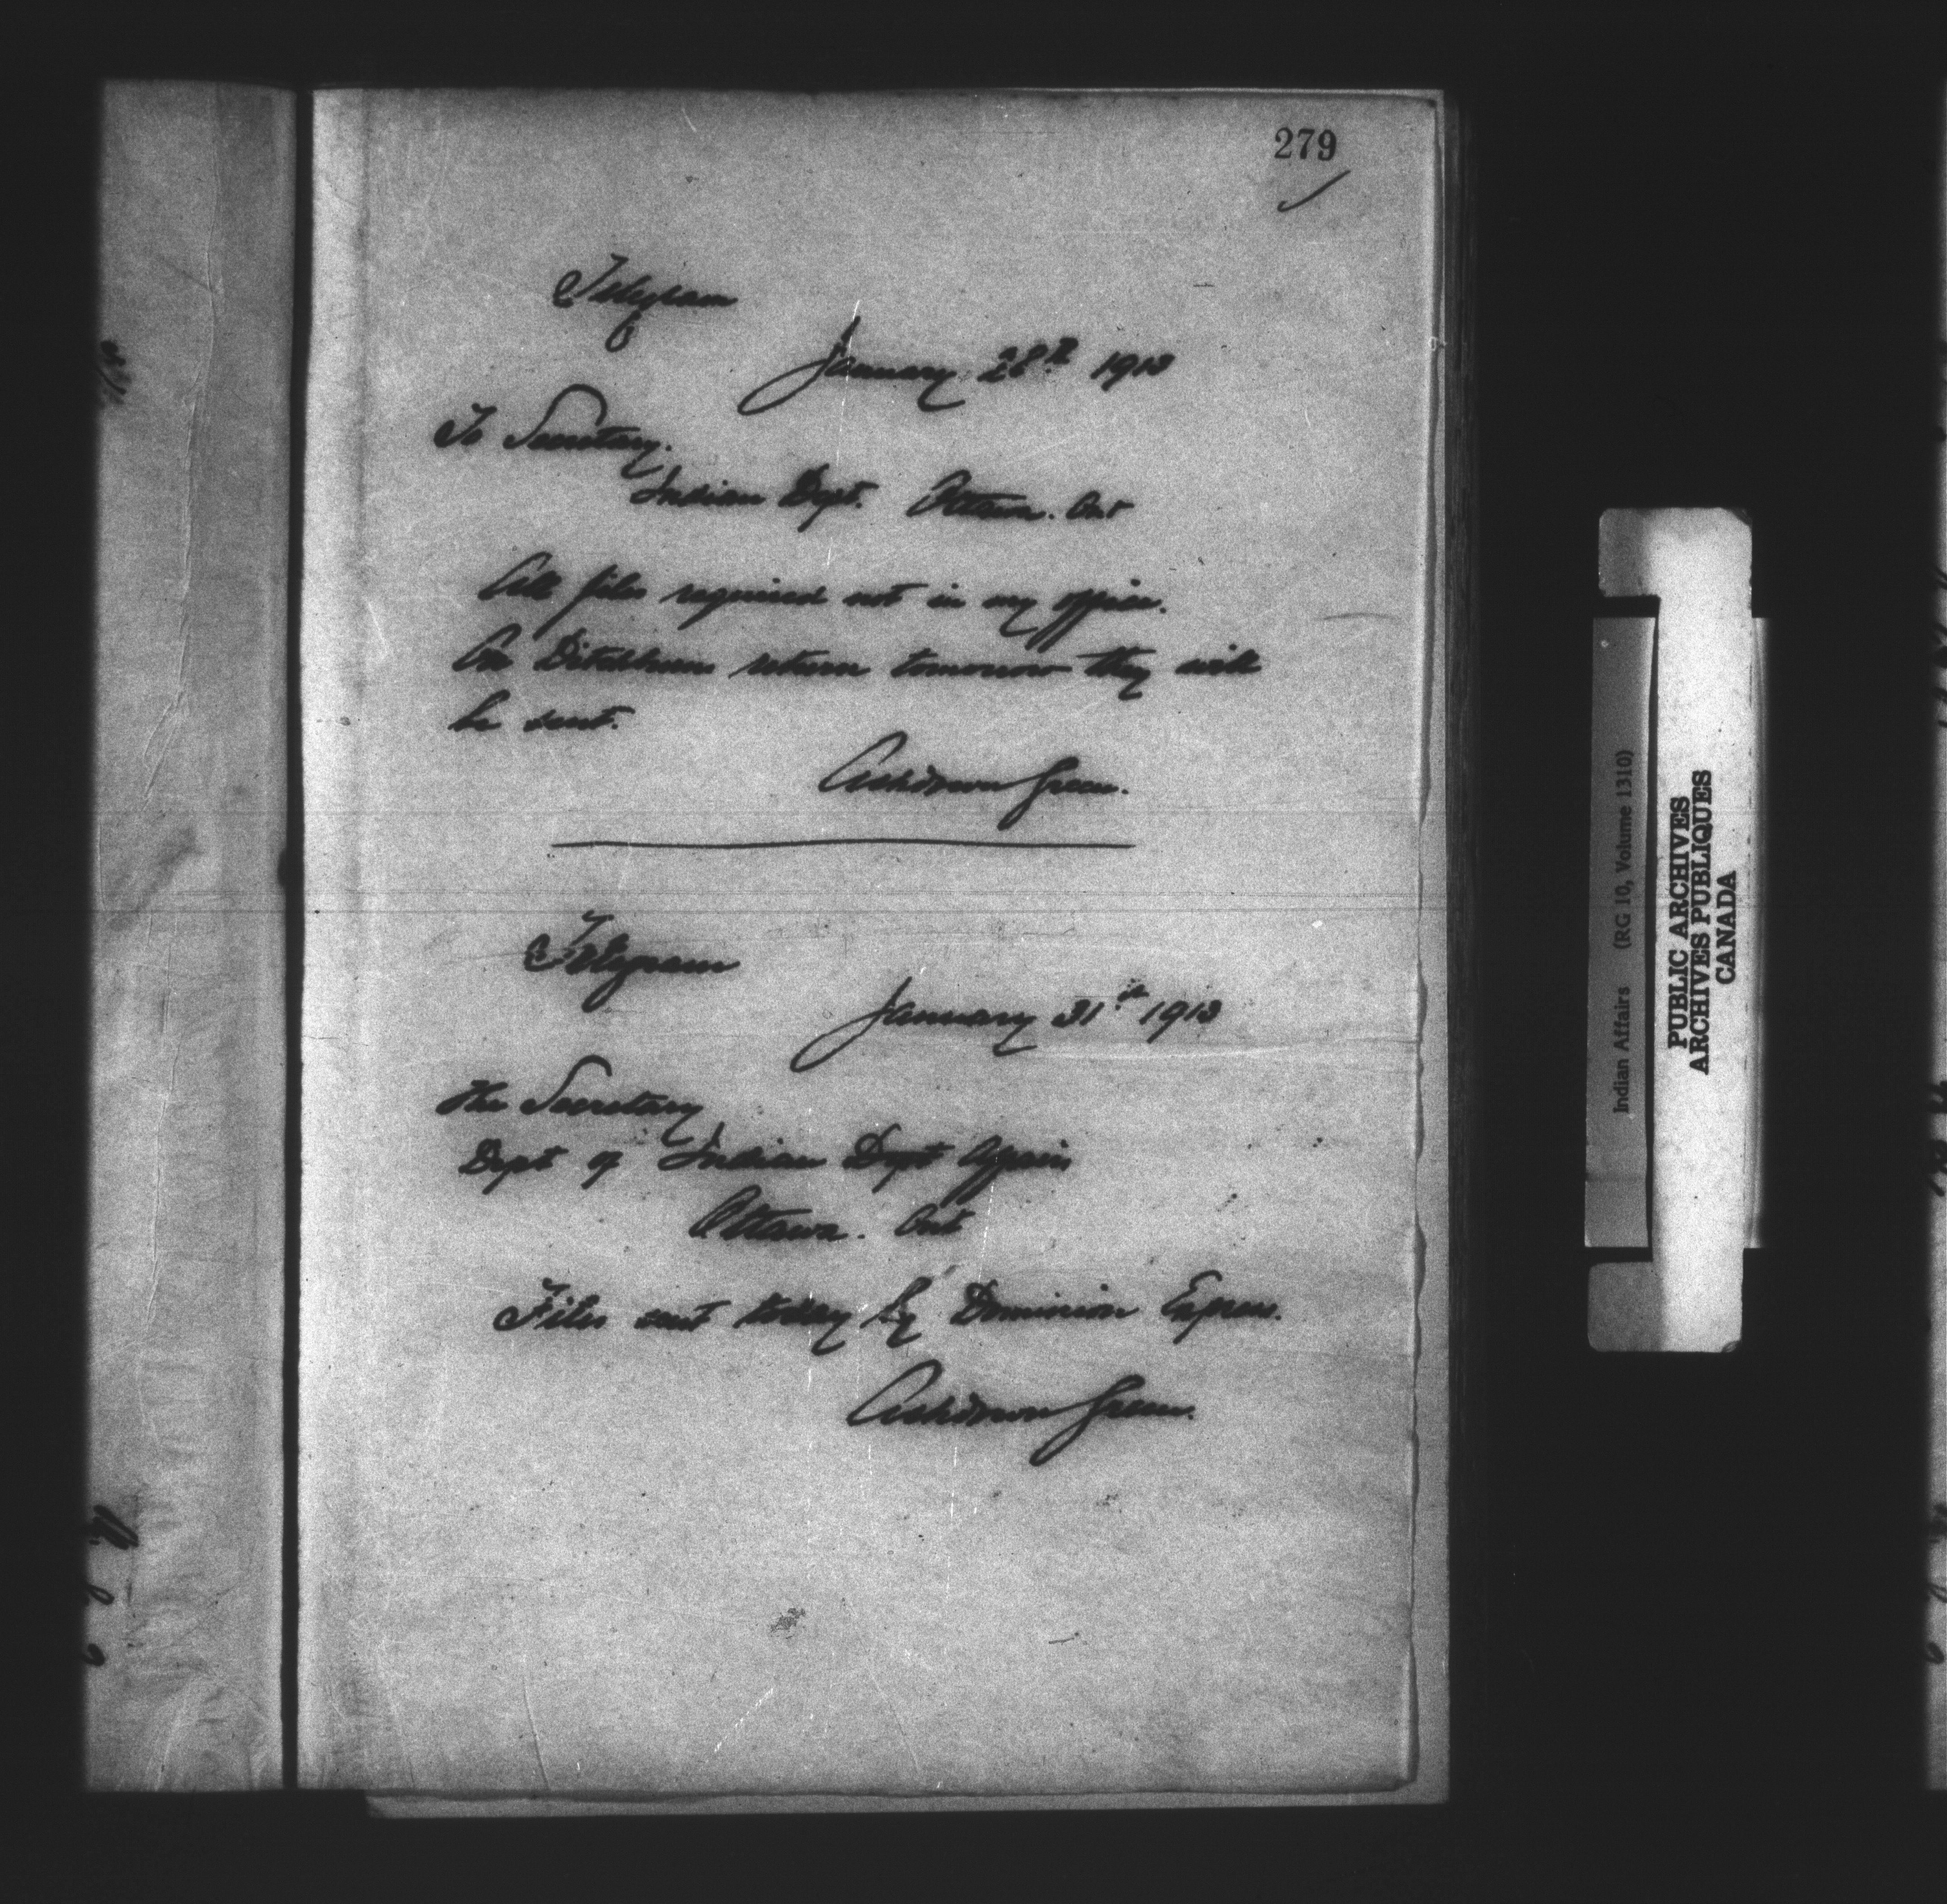 279
Telegram
January 28th 1913
To Secretary.
Indian Dept. Ottawa. Ont
All files required not in my office.
On Ditchburns return tomorrow they will
be sent.
Ashdown Green.
Telegram
January 31st 1913
The Secretary
Dept of Indian Dept Affairs
Ottawa. Ont
Files sent today by Dominion Express.
Ashdown Green.
Indian Affairs (RG 10, Volume 1310)
PUBLIC ARCHIVES
ARCHIVES PUBLIQUES
CANADA